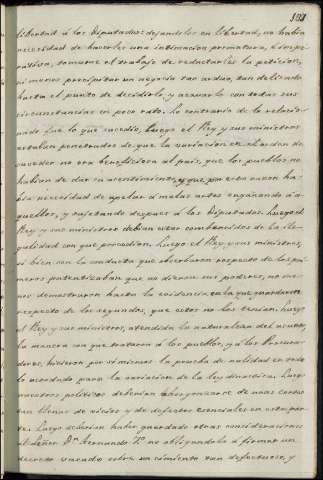 181
libertad á los Diputados: dejandolos en libertad, no habia
necesidad de hacerles una intimacion prematura, é impe-
rativa, tomarse el trabajo de redactarles la peticion,
ni menos precipitar un negocio tan arduo, tan delicado
hasta el punto de decidirlo, y acabarlo con todas sus
circunstancias en poco rato. Lo contrario de lo relacio-
nado fue lo que sucedió, luego el Rey y sus ministros
estaban penetrados de que la variacion en el orden de
suceder no era beneficiosa al pais, que los pueblos no
habian de dar su asentimiento, y que por esta razon ha-
bia necesidad de apelar á malas artes engañando á a-
quellos, y sujetando despues á los Diputados. Luego el
Rey y sus ministros debian estar convencidos de la ile-
galidad con que procedian. Luego el Rey y sus ministros,
si bien con la conducta que observaron respecto de los pri-
meros patentizaban que no dieron sus poderes, no me-
nos demostraron hasta la evidencia en la que guardaron
respecto de los segundos, que estos no los tenian. Luego
el Rey y sus ministros, atendida la naturaleza del asunto,
la manera con que trataron á los pueblos, y á los Procura-
dores, hicieron por si mismos la prueba de nulidad en todo
lo acordado para la variacion de la ley dinastica. Luego
nuestros politicos deberian avergonzarse de unas cortes
tan llenas de vicios y de defectos esenciales en esta par-
te. Luego deberian haber guardado otras consideraciones
al Señor Dn Fernando 7º no obligandolo á firmar un
decreto vaciado sobre un cimiento tan defectuoso, y